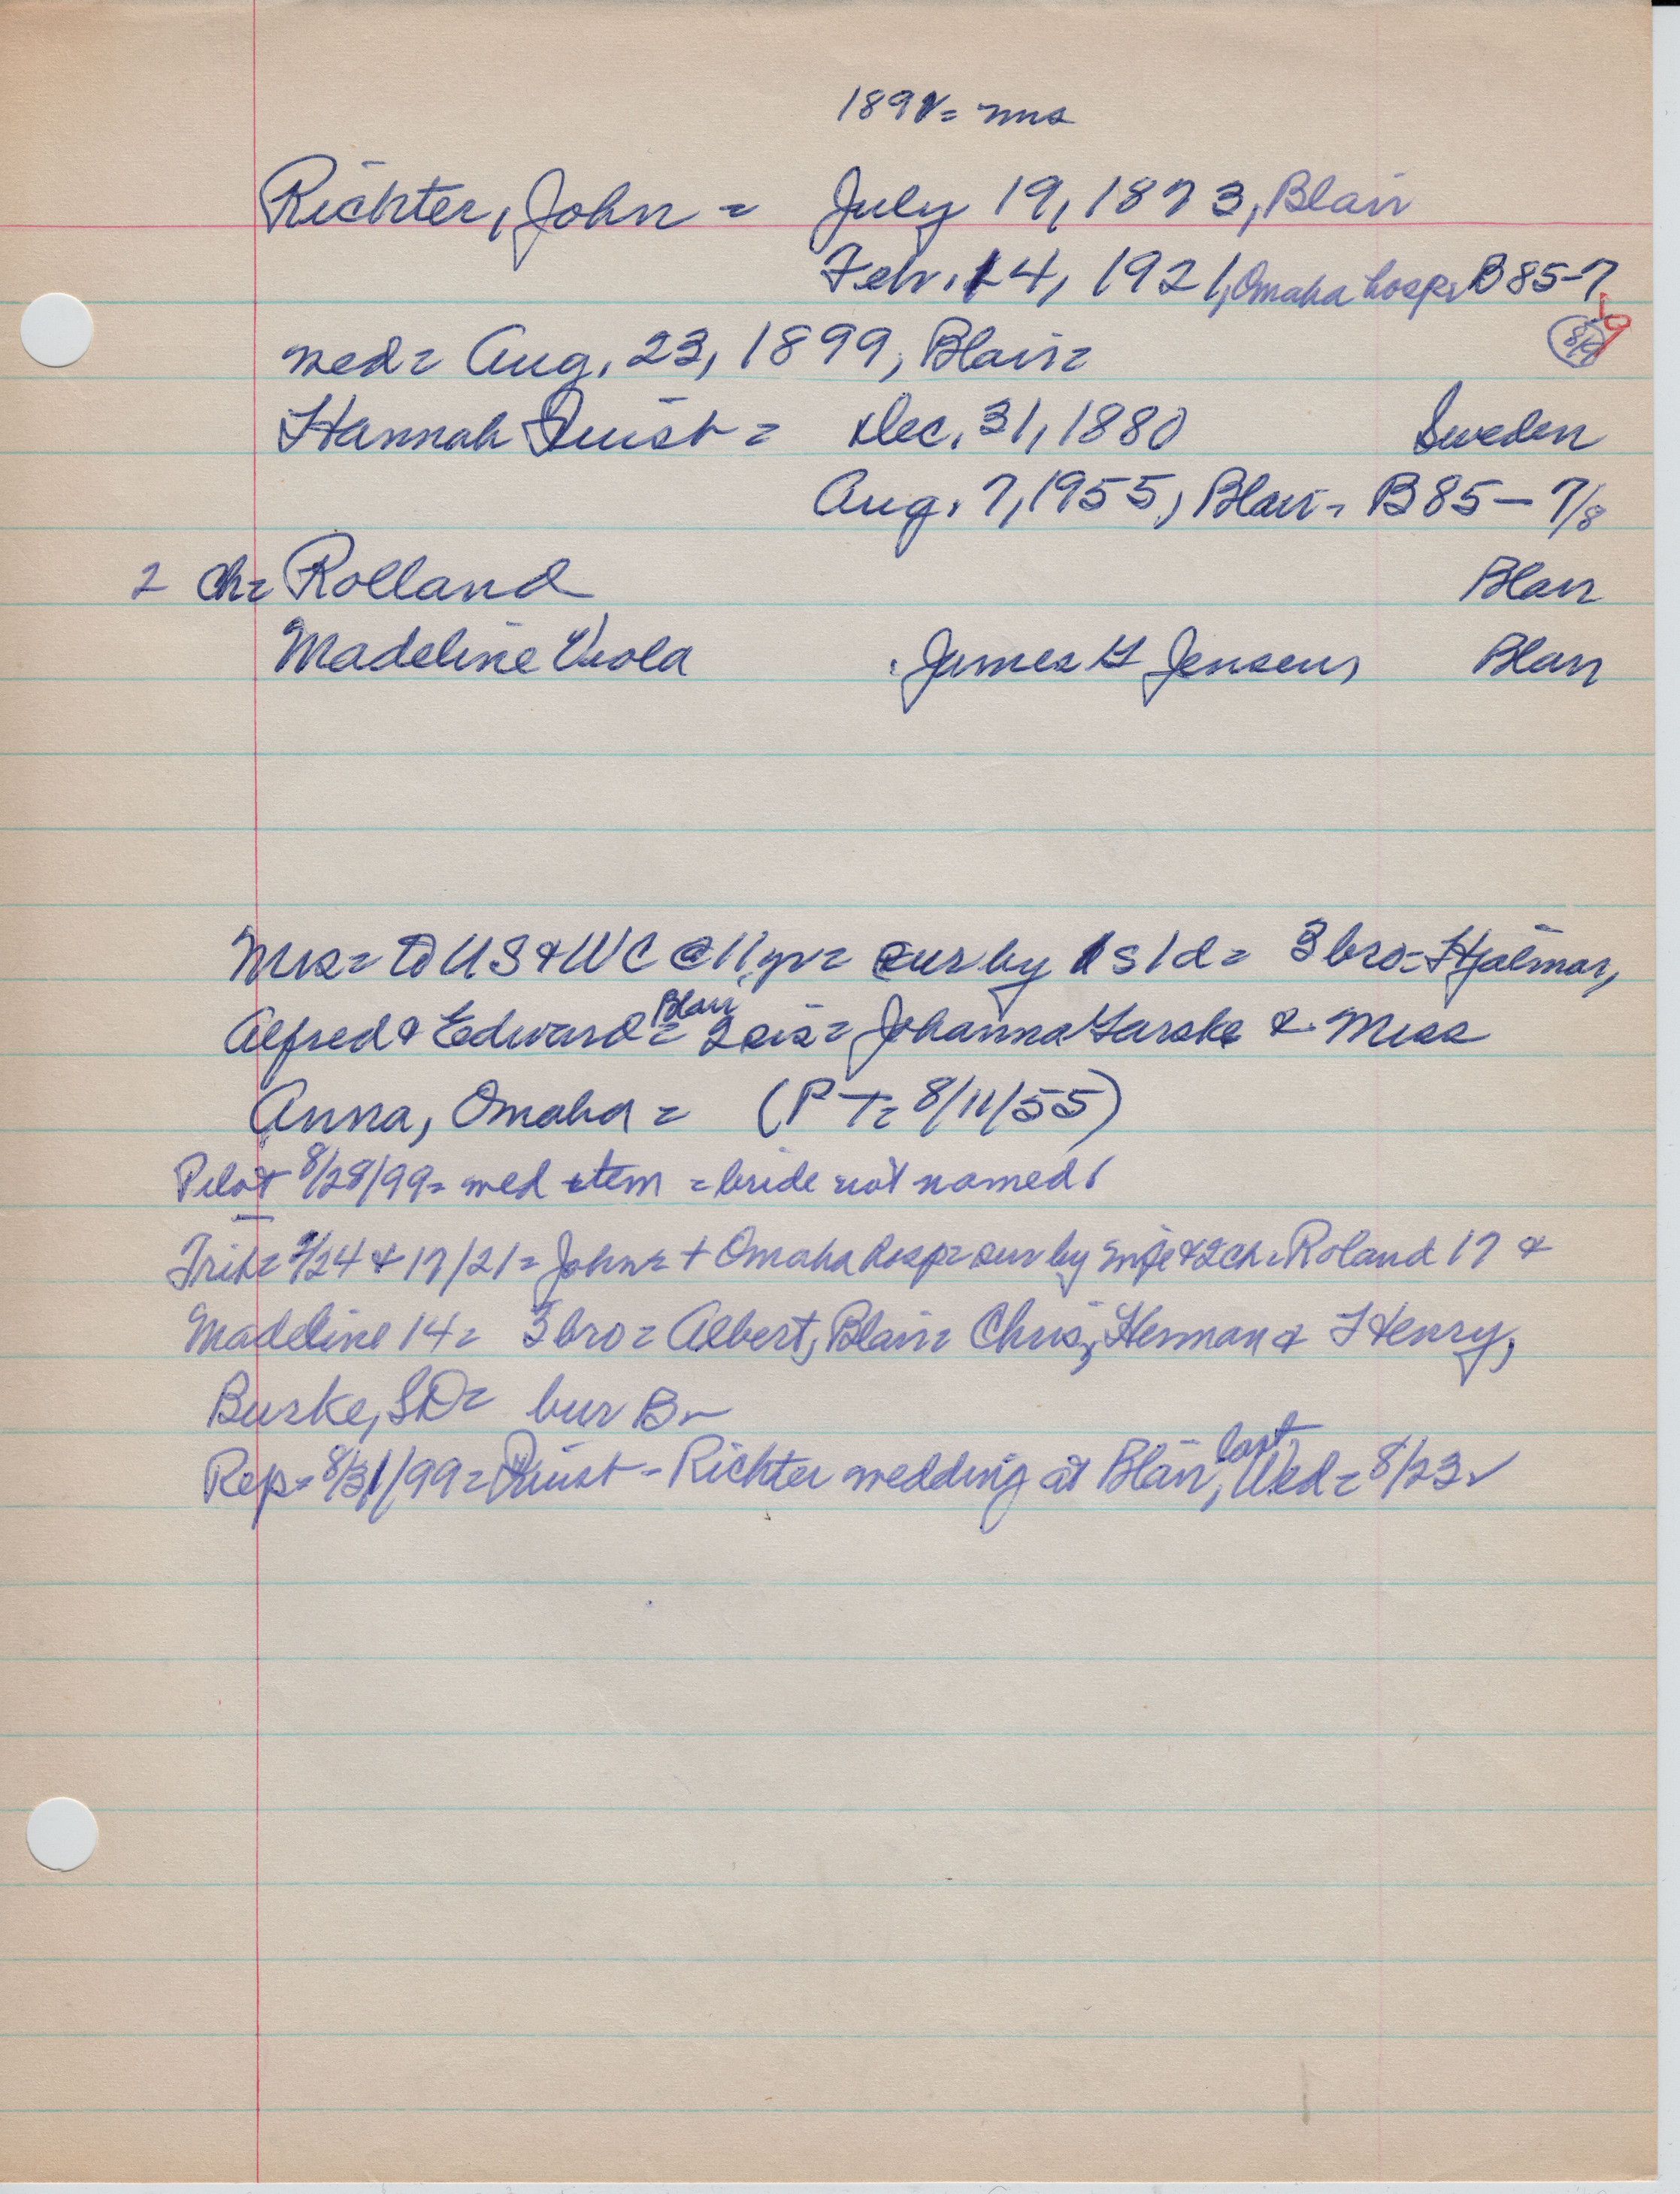 189 = mms
Richter, John = July 19, 1873, Blair
Feb. 14, 1921, Omaha hosp = B 85-7
wed = Aug. 23, 1899, Blair =
Hannah Quist = Dec. 31, 1880 Sweden
Aug. 7, 1955, Blair = B 85 - 7/8
2 ch = Rolland Blair
Madeline Viola James G Jensen, Blair
Mrs = to US & WC @ 11 yr = sur by 1 s 1 d = 3 bro = Hjalmar,
Alfred & Edward = Blair 2 sis = Johanna & Miss
Anna, Omaha = (P T = 8/11/55)
Pilot 8/28/99 = wed item = bride not named
Trib = 2/24 & 17/21 = John = + Omaha hosp = sur by wife & 2 ch = Roland 17 &
Madeline 14 = 3 bro = Albert, Blair = Chris, Herman & Henry,
Burke, SD = bur B
Rep = 8/31/99 = Quist - Richter wedding at Blair, last Wed = 8/23 ✓